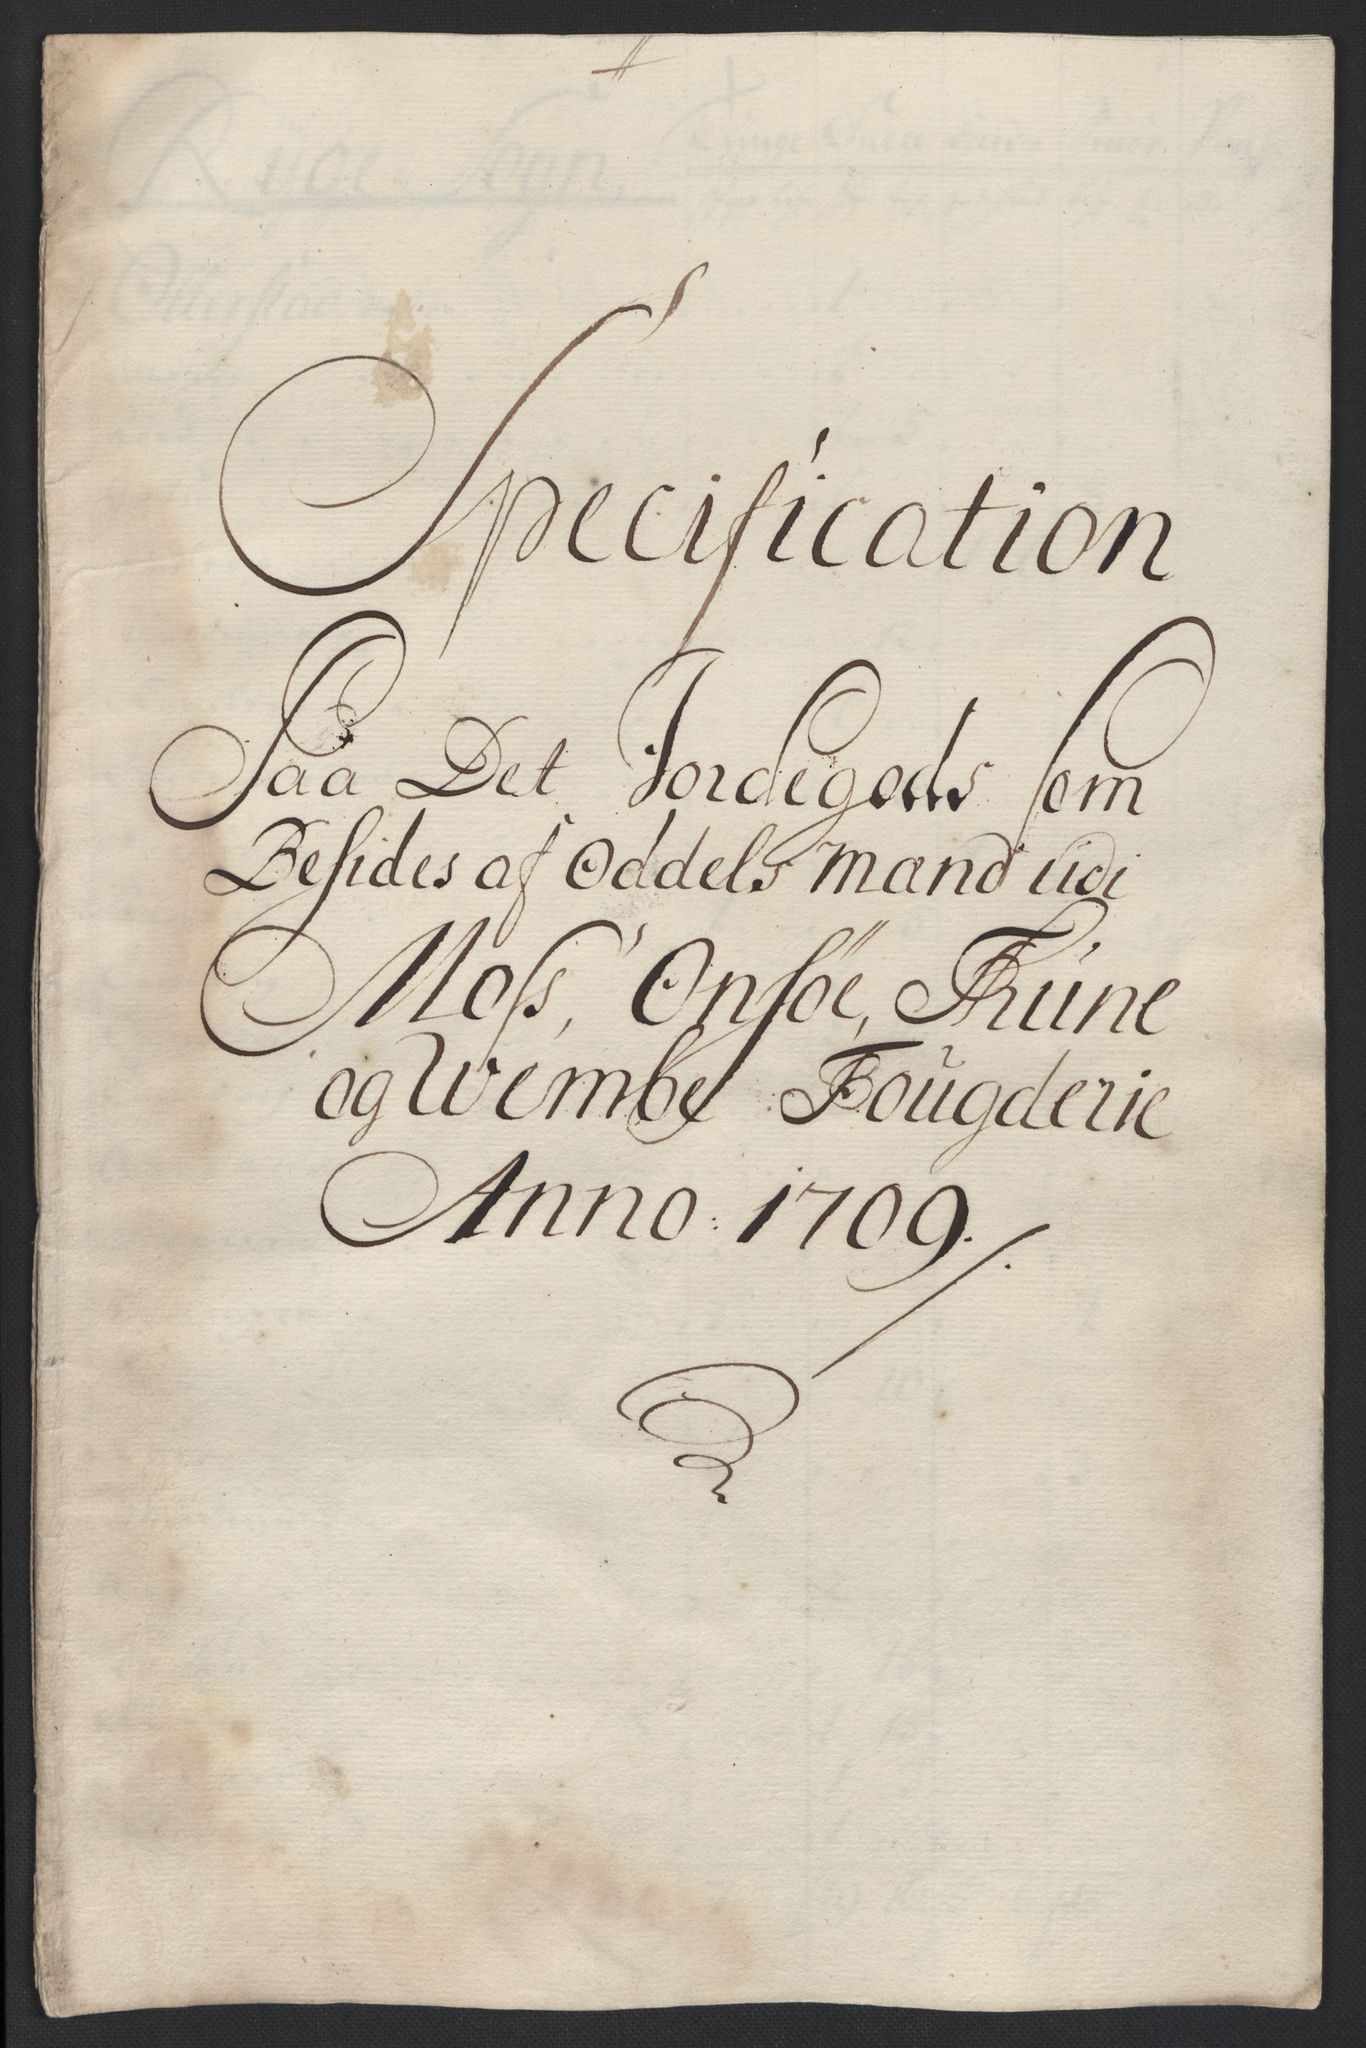 Specification
Paa Det Jordegods som
Besides af Oddels Mand udi
Moss, Onsöe, Thüne
og Wembe Fougderie
Anno: 1709.